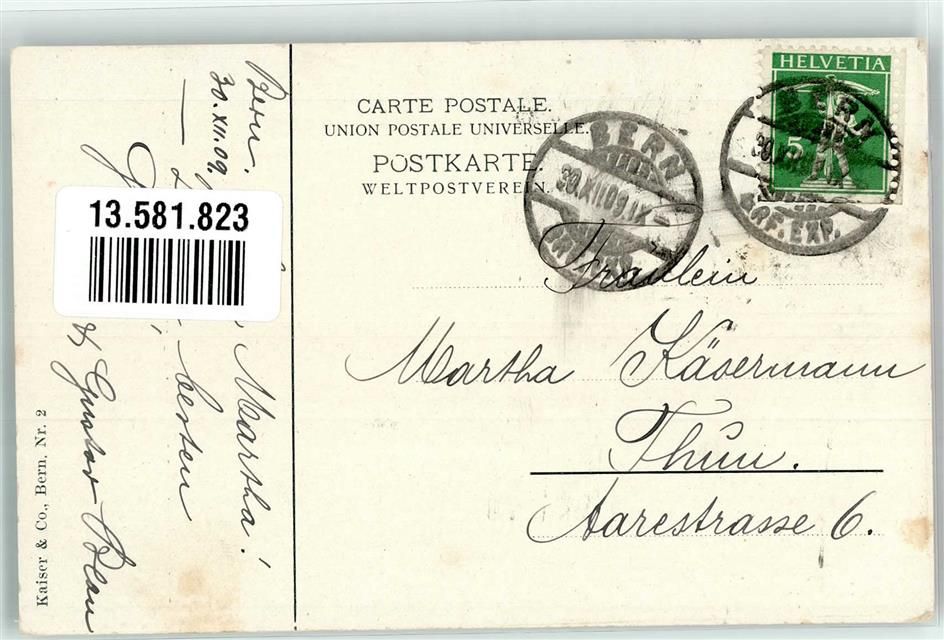 Bern.
30. XII. 09.
Martha!
besten
& Gustav Blau
13.581.823
Kaiser & Co., Bern, Nr. 2
CARTE POSTALE.
UNION POSTALE UNIVERSELLE.
POSTKARTE.
WELTPOSTVEREIN.
BERN
30.XII.09.IX
HELVETIA
5
BERN
BRF. EXP.
Fräulein
Martha Käsermann
Thun.
Aarestrasse 6.